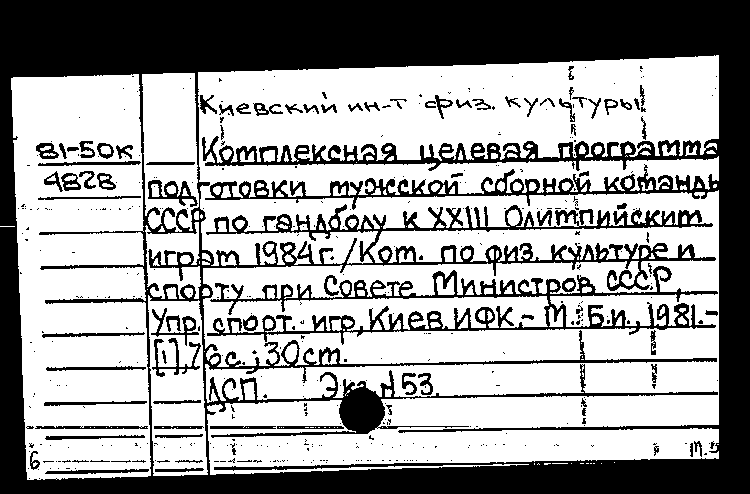 Киевский ин-т физ. культуры
81-50к Комплексная целевая программа
4828 подготовки мужской сборной команды
СССР по гандболу к XXIII Олимпийским
играм 1984 г. /Ком. по физ. культуре и
спорту при Совете Министров СССР,
Упр. спорт. игр, Киев. ИФК.- М.: Б.и., 1981.-
[1], 76 с.; 30 см.
ДСП. Экз. N 53.
6